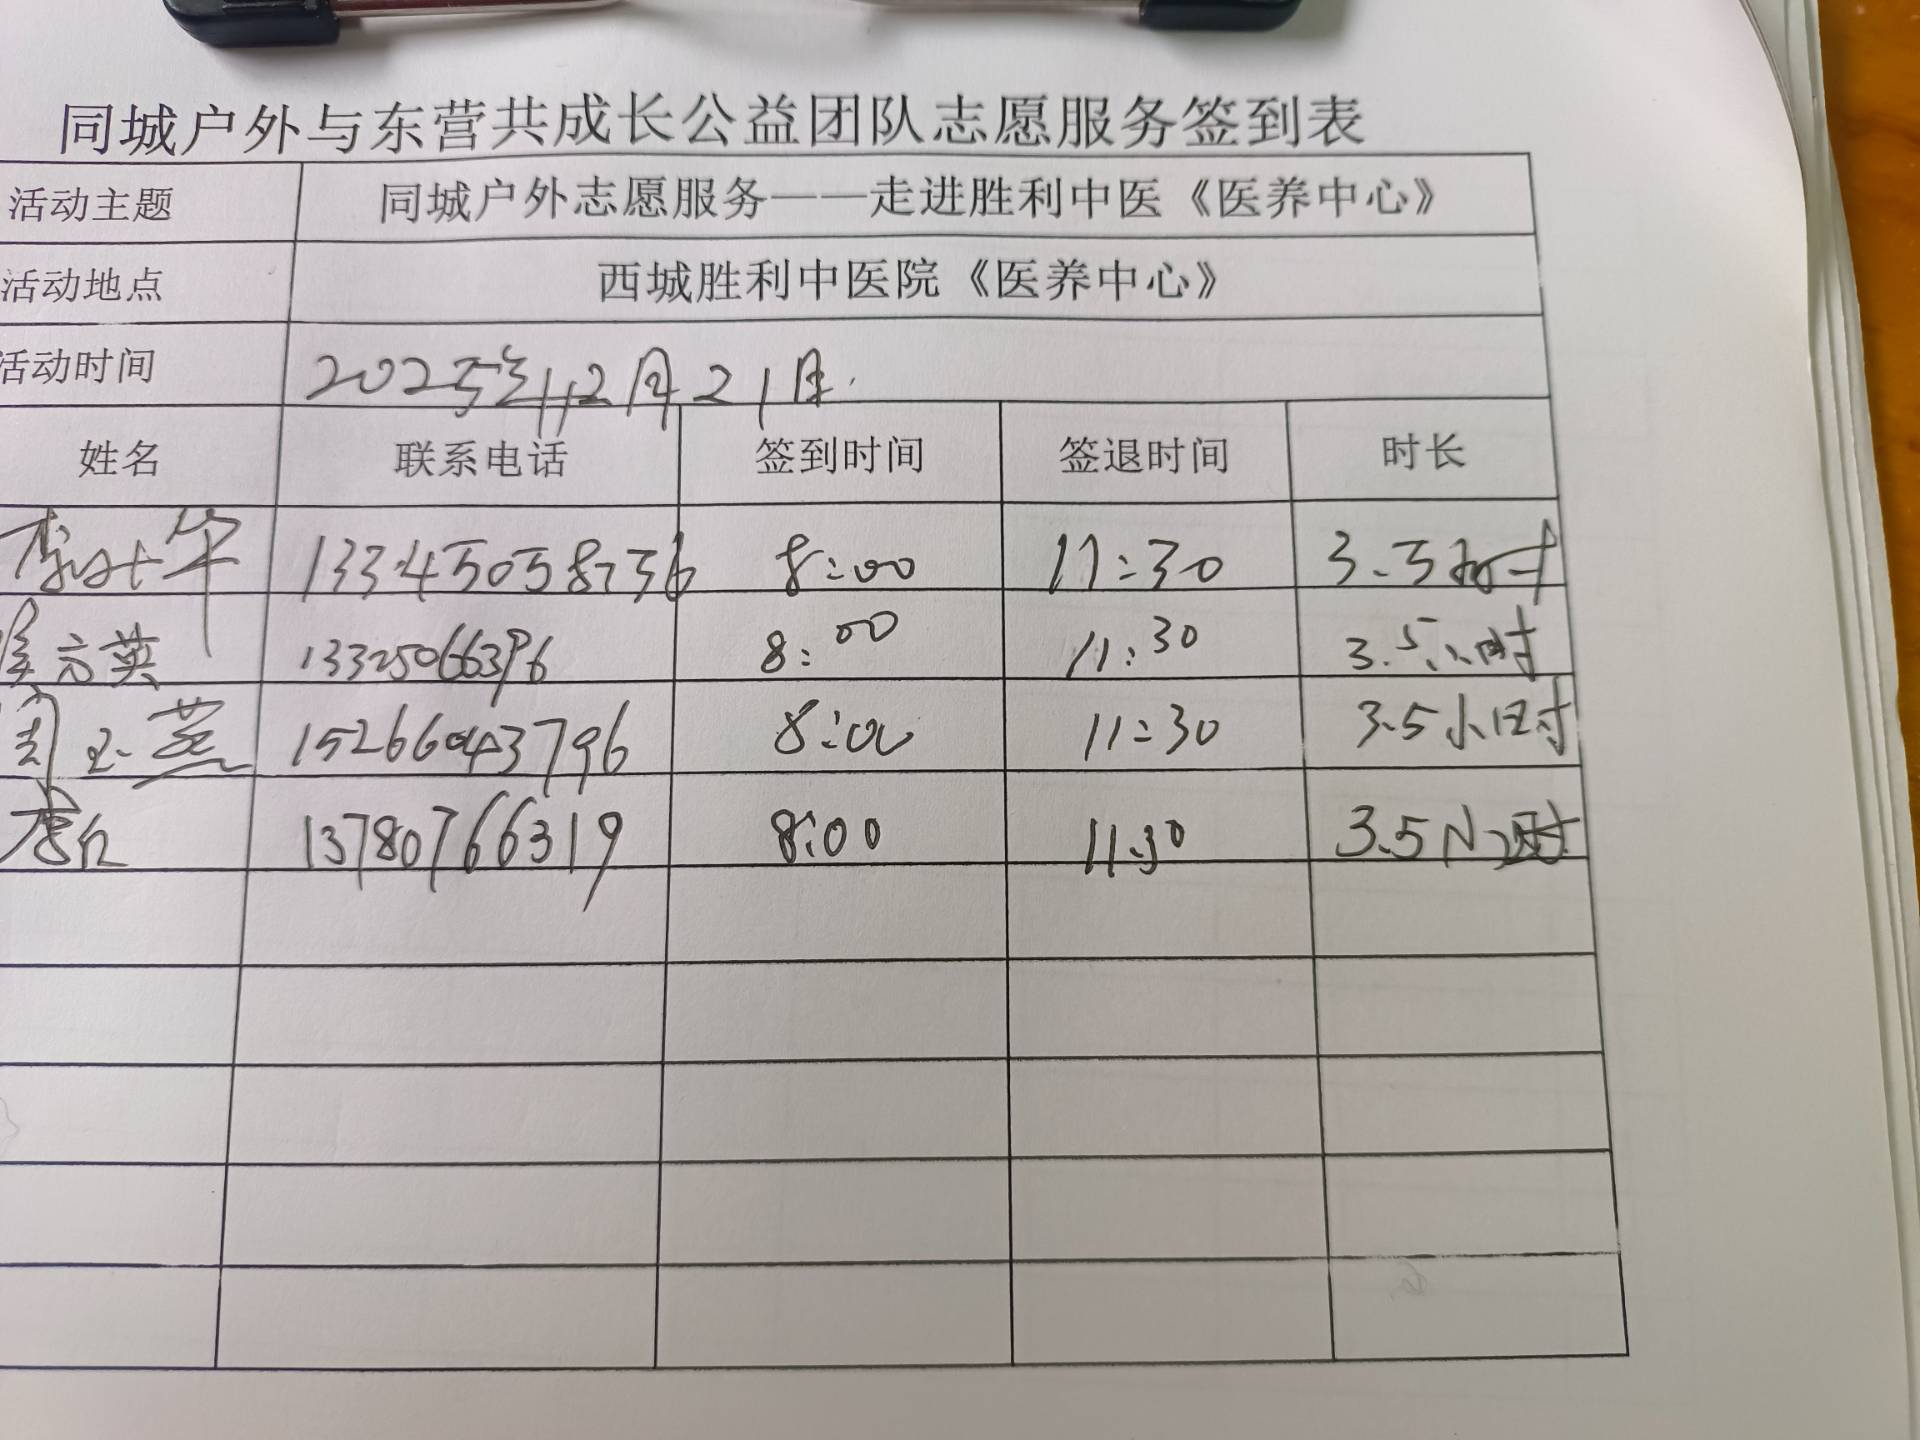 同城户外与东营共成长公益团队志愿服务签到表
活动主题 同城户外志愿服务——走进胜利中医《医养中心》
活动地点 西城胜利中医院《医养中心》
活动时间 2025年12月21日
姓名 联系电话 签到时间 签退时间 时长
13345058736 8:00 11:30 3.5小时
方英 13325066396 8:00 11:30 3.5小时
周玉燕 15266043796 8:00 11:30 3.5小时
13780766319 8:00 11:30 3.5小时